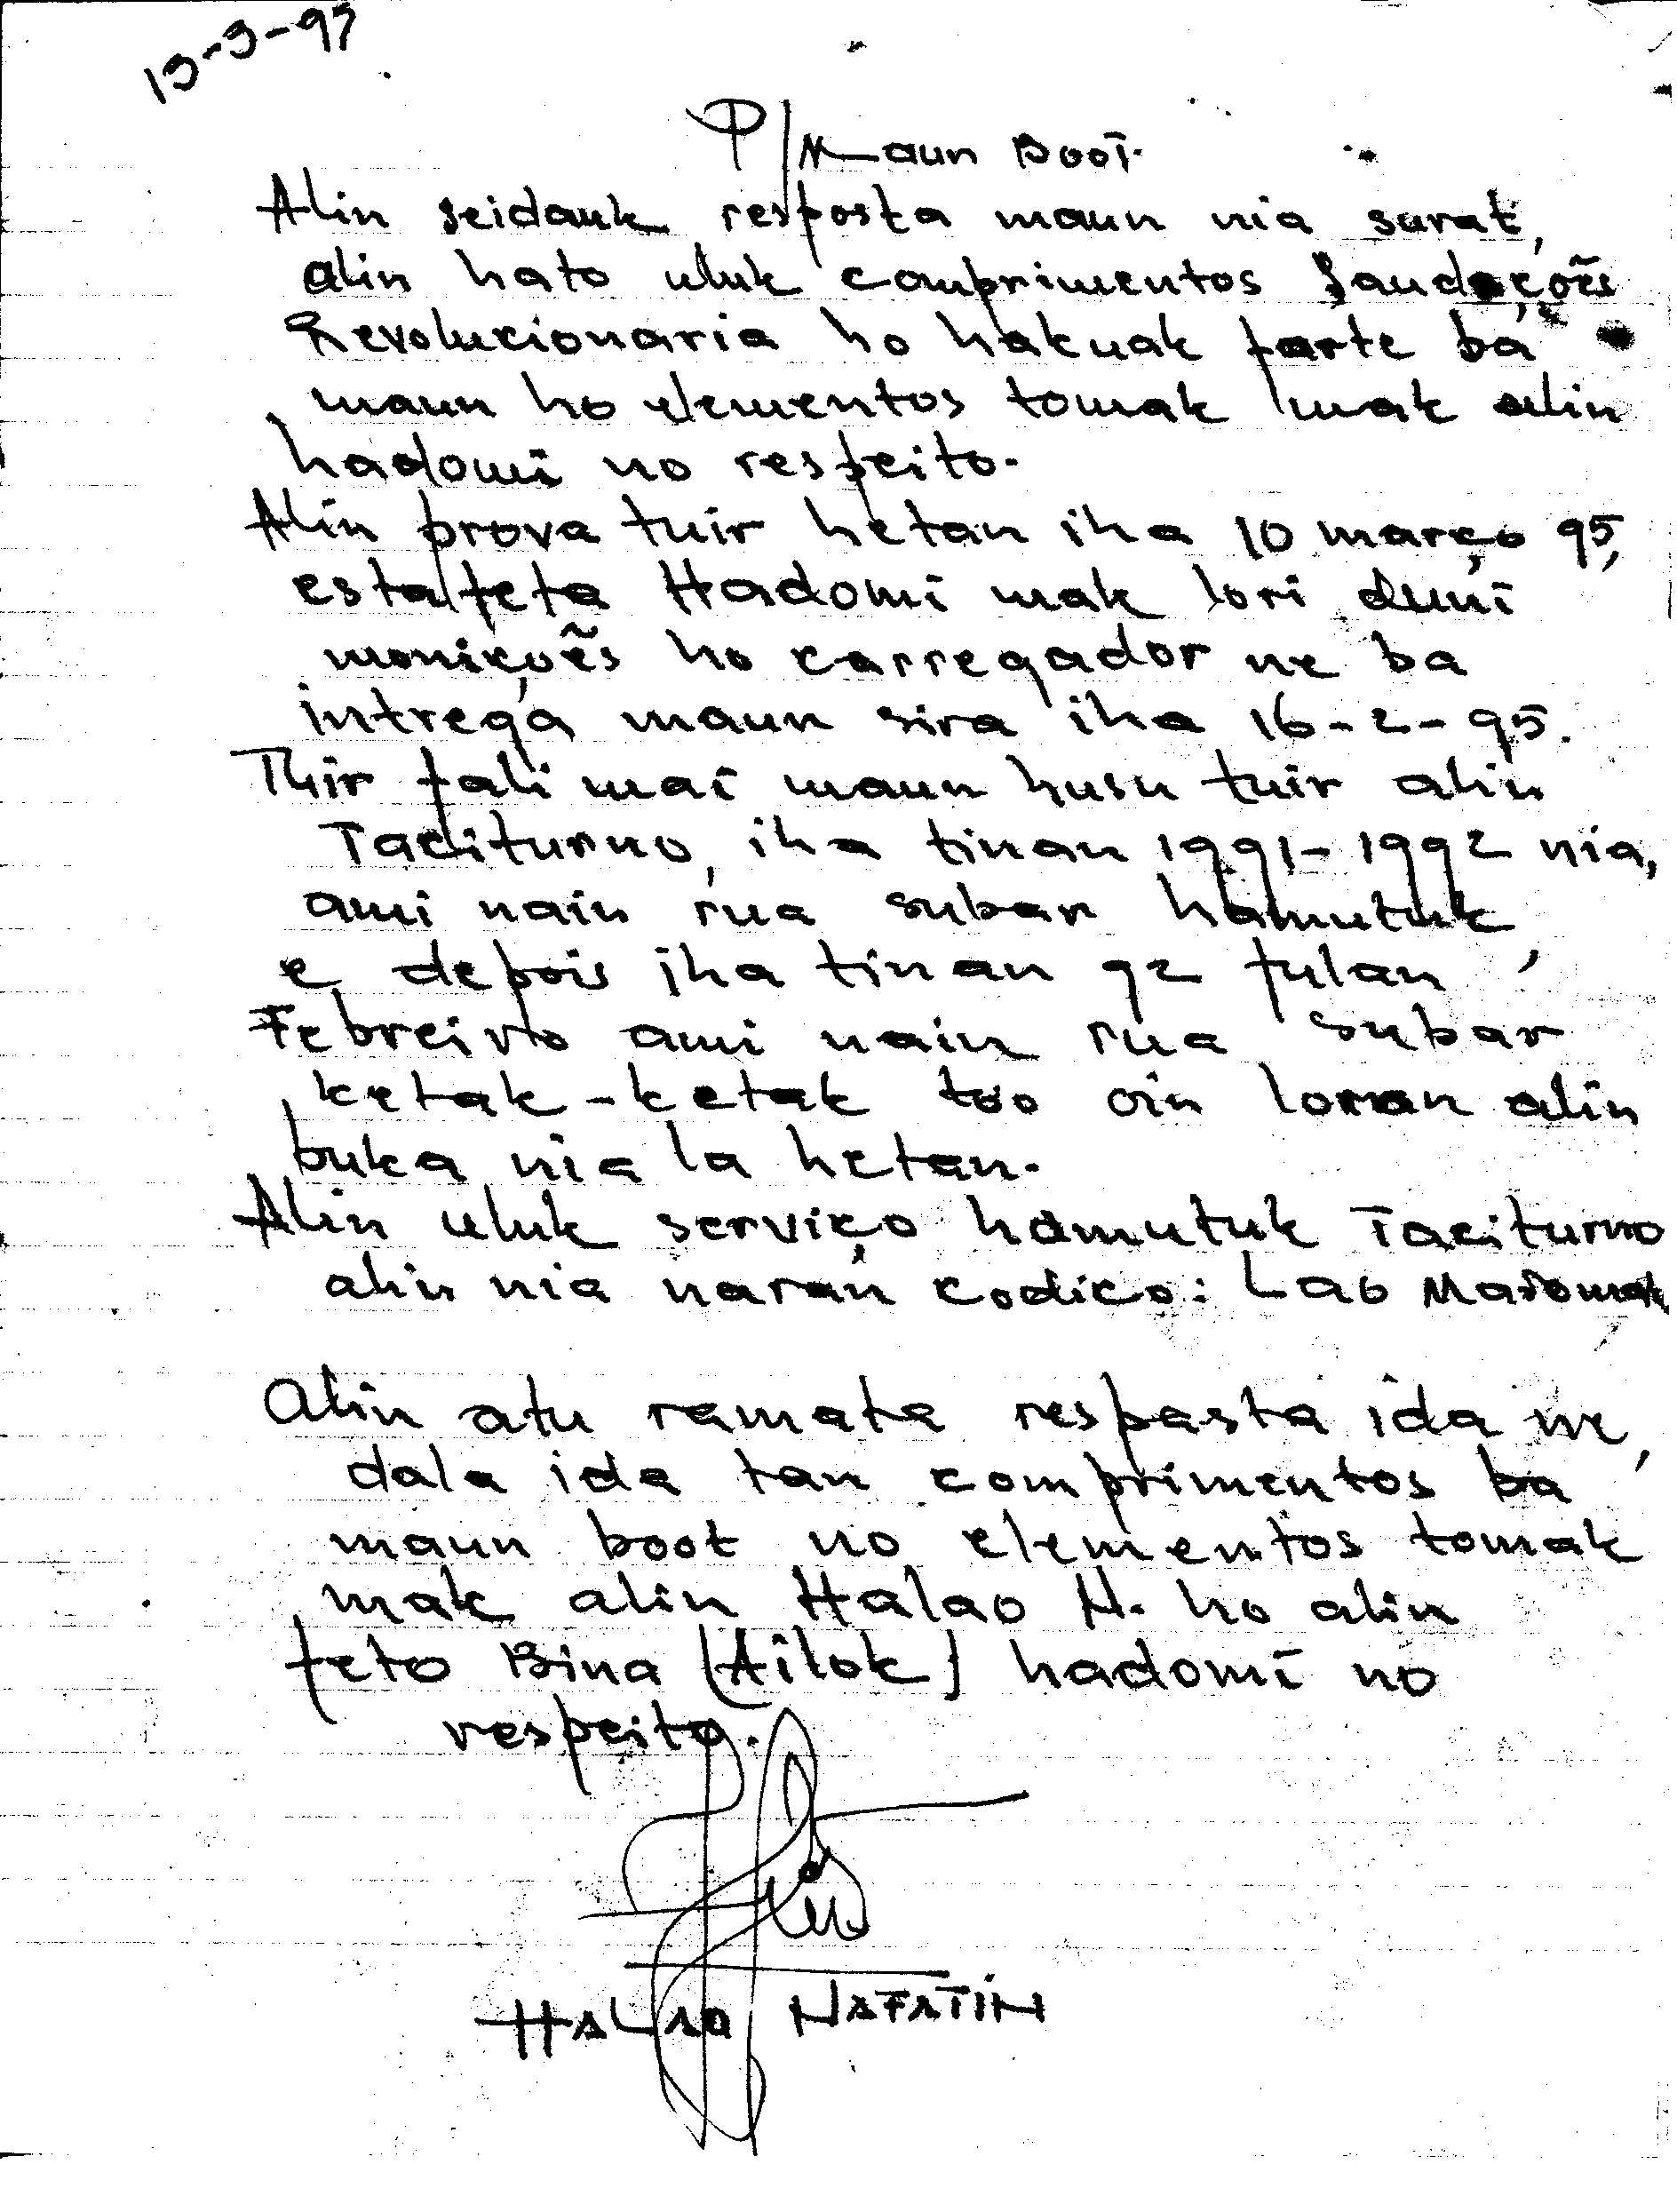 P/Maun Boot.
Alin seidauk resposta maun nia surat,
alin hato uluk comprimentos Saudações
Revolucionaria ho hakuak forte ba
maun ho elementos tomak mak alin
hadomi no respeito.
Alin prova tuir hetan iha 10 março 95,
estafeta Hadomi mak lori duni
monições ho carregador ne ba
intrega maun sira iha 16-2-95.
Tuir fali mai maun husu tuir alin
Taciturno, iha tinan 1991-1992 nia,
ami nain rua subar hamutuk,
e depois iha tinan 92 fulan
Febreivo ami nain rua subar
ketak-ketak too oin loron alin
buka nia la hetan.
Alin uluk serviço hamutuk Taciturno
alin nia naran codico: Lao Maromak
Alin atu ramata respasta ida ne,
dala ida tan comprimentos ba
maun boot no elementos tomak
mak alin Halao N. ho alin
feto Bina (Ailok) hadomi no
respeito.
HALAO NAFATIN